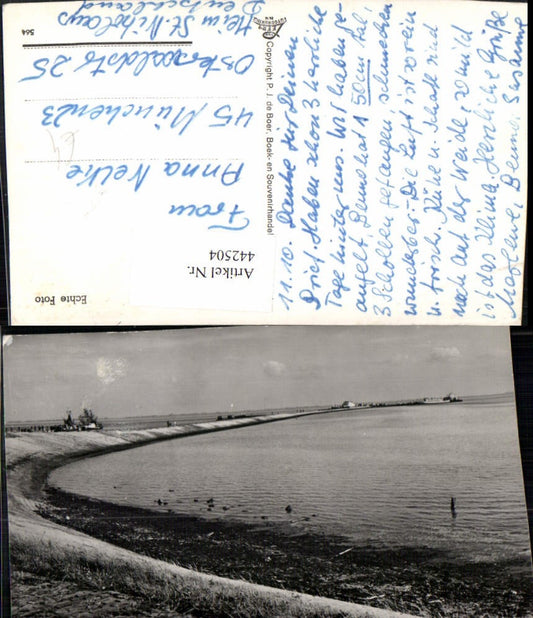 11.10. Danke für Deinen
Brief. Haben schon 3 herrliche
Tage hinter uns. Wir haben ge-
angelt, Benno hat 1 50cm Aal,
3 Schollen gefangen, schmecken
wunderbar. Die Luft ist so rein
u. frisch. Kühe u. Schafe sind
noch auf der Weide, so mild
ist das Klima. Herzliche Grüße
Marlene, Benno, Susanne
Copyright P. J. de Boer, Boek- en Souvenirhandel
Frau
Anna Nelke
45 München 23
Osterwaldstr 25
Heim St. Nikolaus
Deutschland
564
Artikel Nr.
442504
Echte Foto